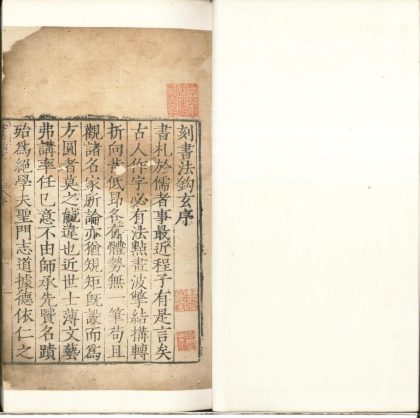 刻書法鈎玄序
書札於儒者事最近程子有是言矣
古人作字必有法點畫波撆結搆轉
折向背低昂各有體勢無一筆苟且
觀諸名家所論亦猶規矩既設而為
方圓者莫之能違也近世士薄文藝
弗講率任已意不由師承先賢名蹟
殆爲絕學夫聖門志道據德依仁之